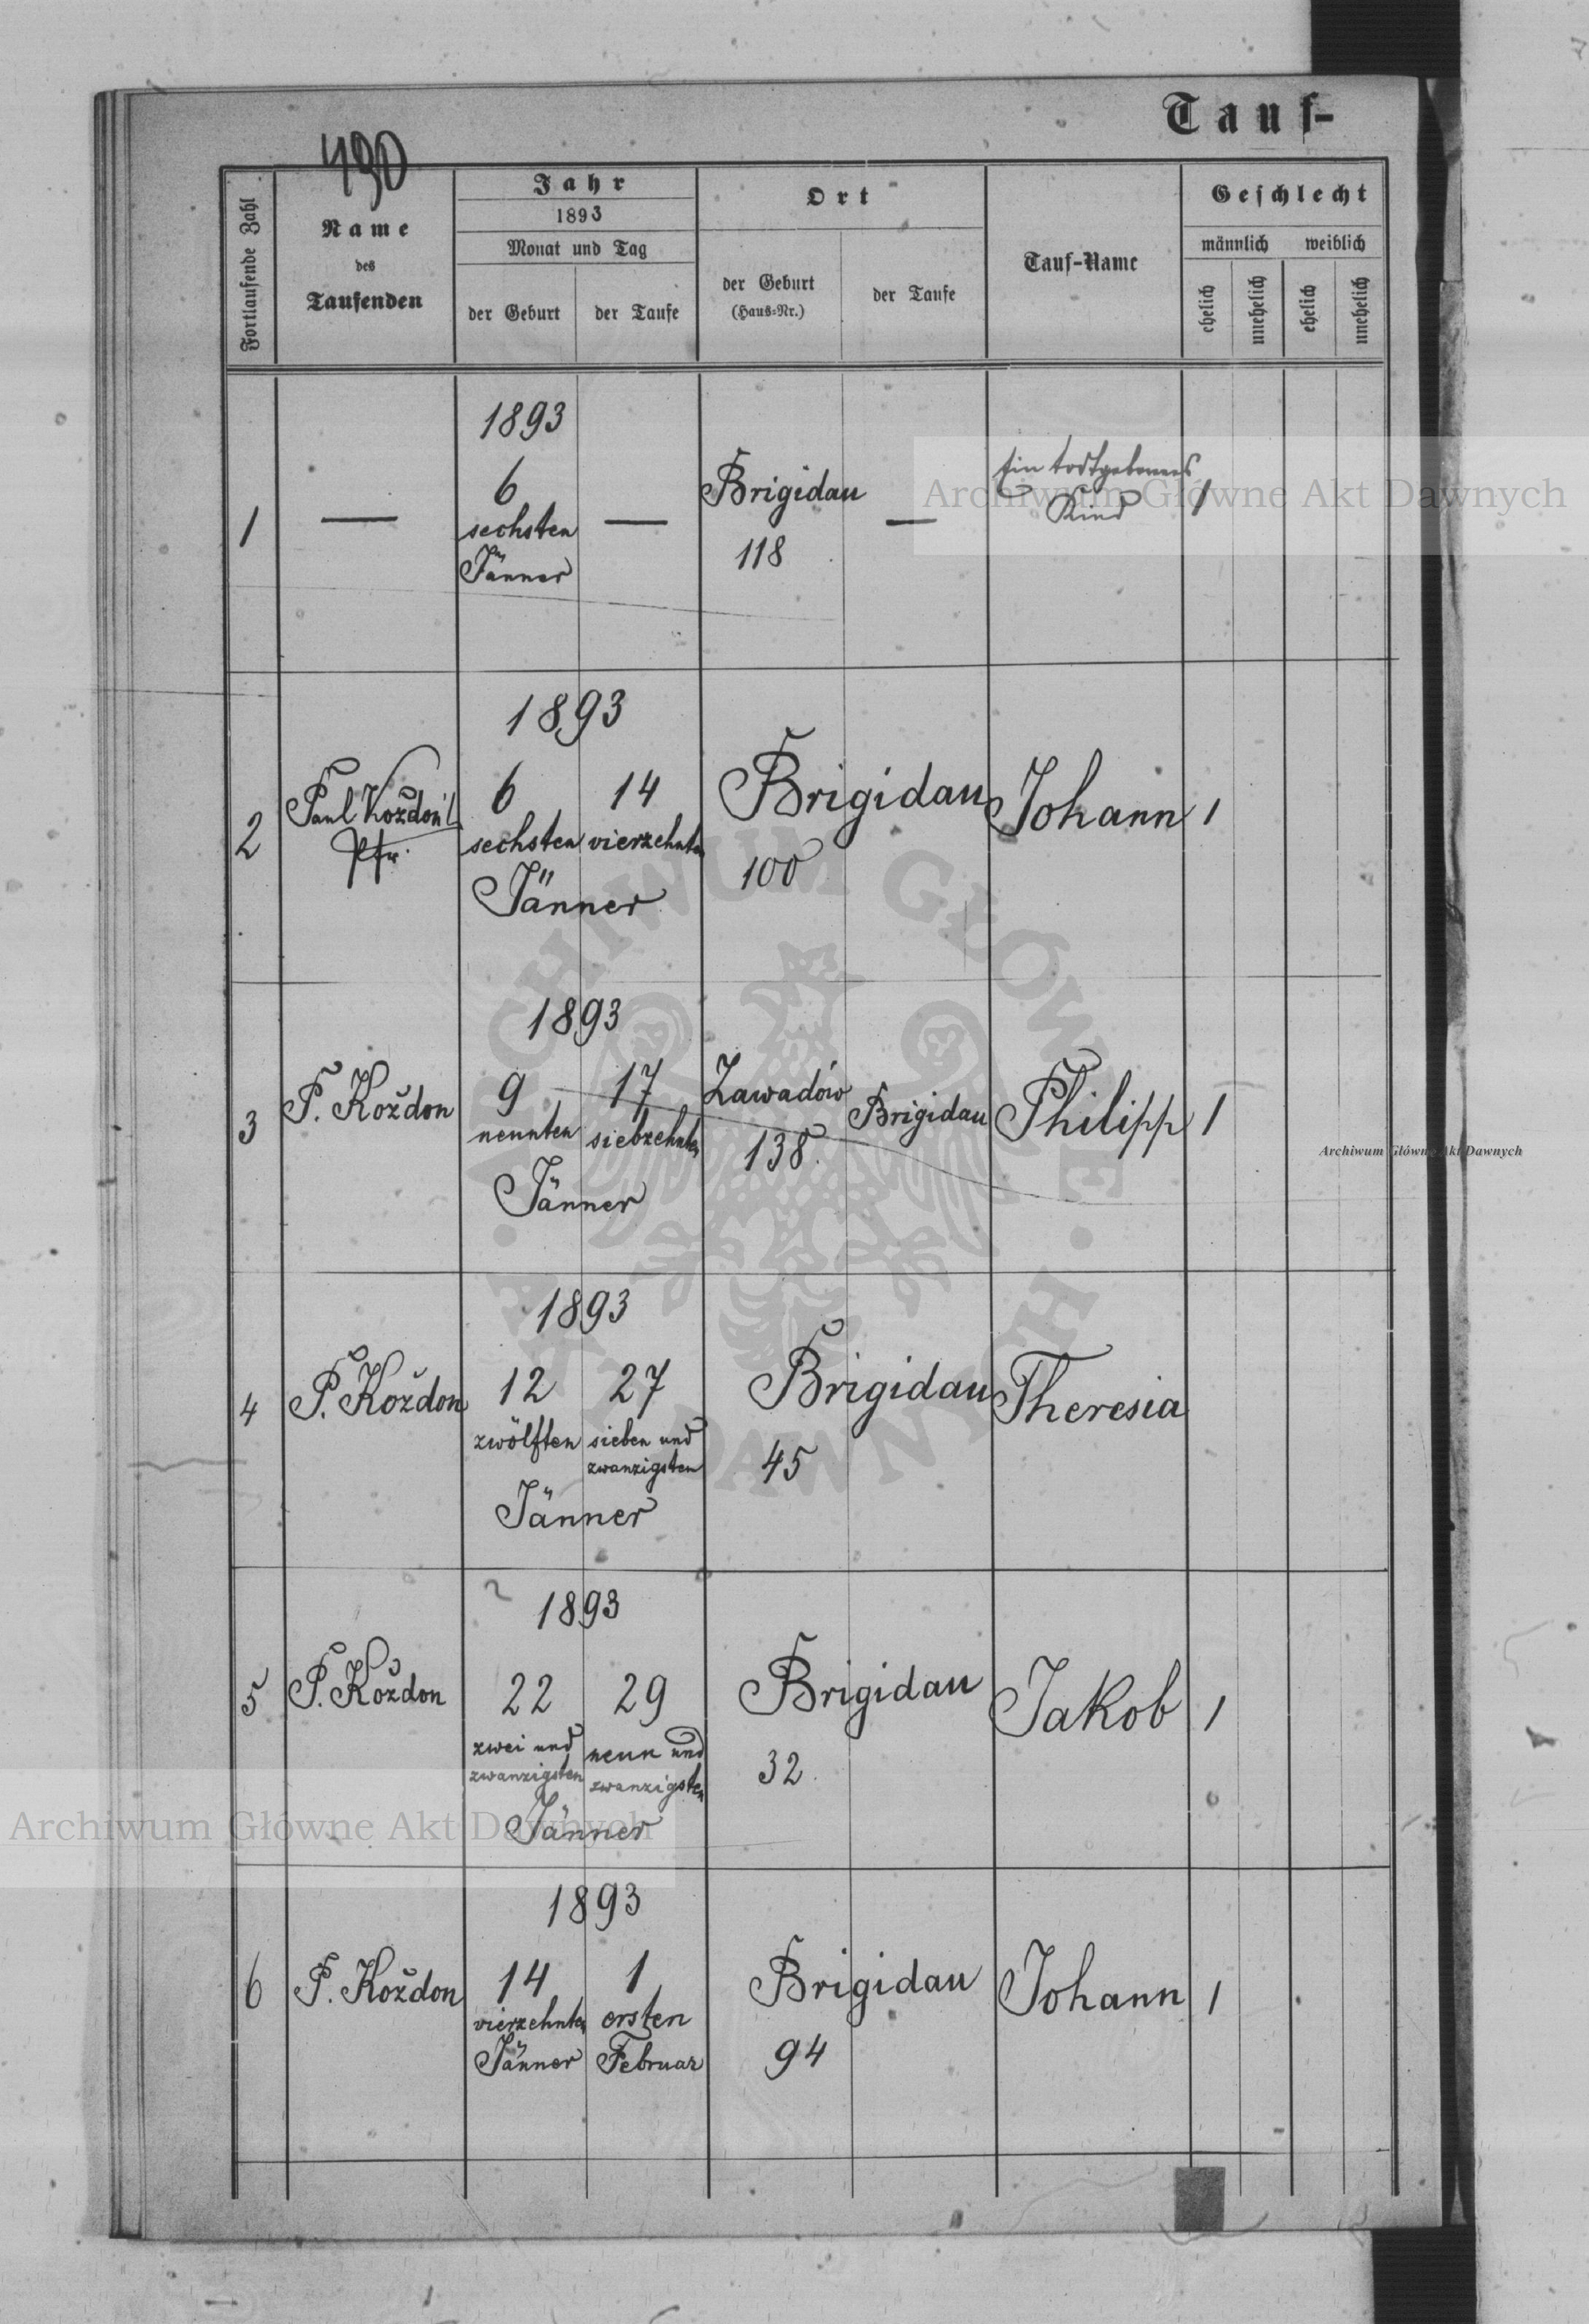 Tauf-
490
Fortlaufende Zahl
Name
des
Taufenden
Jahr
1893
Monat und Tag
der Geburt
der Taufe
Ort
der Geburt
(Haus-Nr.)
der Taufe
Tauf-Name
Geschlecht
männlich
weiblich
ehelich
unehelich
ehelich
unehelich
1
—
1893
6
sechsten
Jänner
—
Brigidau
118
—
Ein todtgeborenes
Kind
1
2
Paul Koždoń
Pfr.
1893
6 14
sechsten vierzehnten
Jänner
Brigidau
100
Johann
1
3
P. Koždon
1893
9 17
neunten siebzehnten
Jänner
Zawadów
138.
Brigidau
Philipp
1
4
P. Koždon
1893
12 27
zwölften sieben und
zwanzigsten
Jänner
Brigidau
45
Theresia
5
P. Koždon
1893
22 29
zwei und neun und
zwanzigsten zwanzigsten
Jänner
Brigidau
32.
Jakob
1
6
P. Koždon
1893
14 1
vierzehnten ersten
Jänner Februar
Brigidau
94
Johann
1
Archiwum Główne Akt Dawnych
Archiwum Główne Akt Dawnych
Archiwum Główne Akt Dawnych
ARCHIWUM GŁÓWNE · AKT DAWNYCH ·